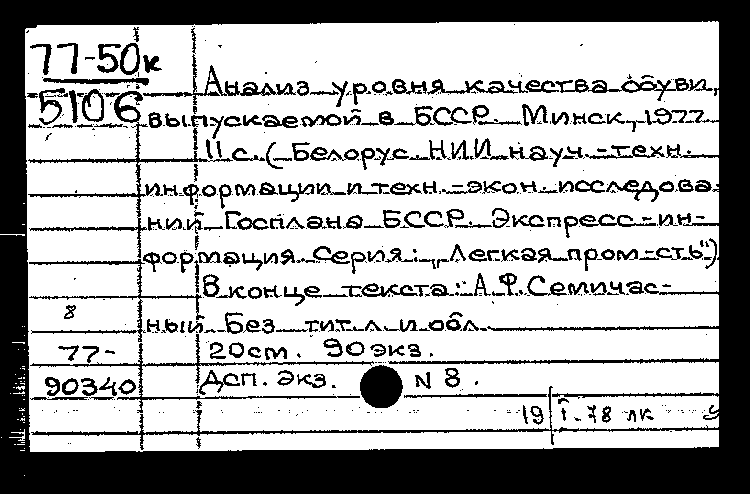 77-50к
5106
Анализ уровня качества обуви,
выпускаемой в БССР. Минск, 1977
11 с. (Белорус. НИИ науч.-техн.
информации и техн.-экон. исследова-
ний Госплана БССР. Экспресс-ин-
формация. Серия: „Легкая пром-сть")
В конце текста: А.Ф. Семичас-
ный. Без тит. л. и обл.
8
77-
90340
20см. 90 экз.
ДСП. Экз. N 8.
19 I-78 лк